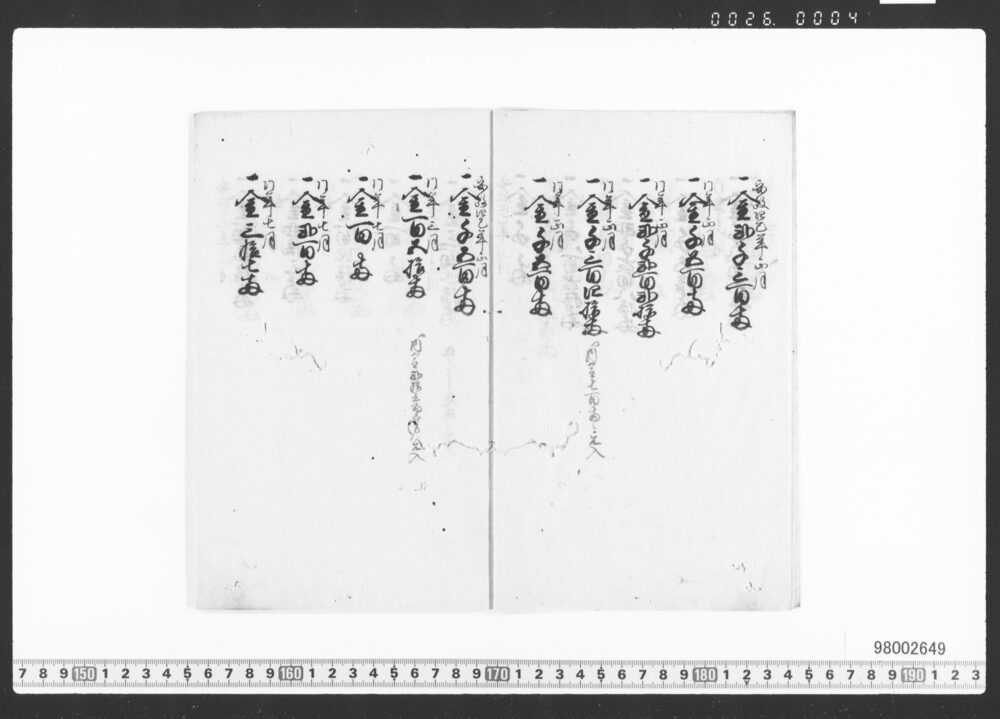 0026. 0004
安政四巳年正月
一金弐千三百両
同年正月
一金千五百両
同年正月
一金弐千弐百弐拾両
同年正月
一金千三百四拾両
内金七百両
入
同年正月
一金千五百両
安政四巳年正月
一金千五百両
同年三月
一金百五拾両
入
同年七月
一金百両
同年七月
一金弐百両
同年七月
一金三拾七両
98002649
7 8 9 150 1 2 3 4 5 6 7 8 9 160 1 2 3 4 5 6 7 8 9 170 1 2 3 4 5 6 7 8 9 180 1 2 3 4 5 6 7 8 9 190 1 2 3